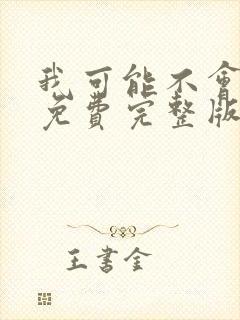 我可能不會
免費完整版
王書金